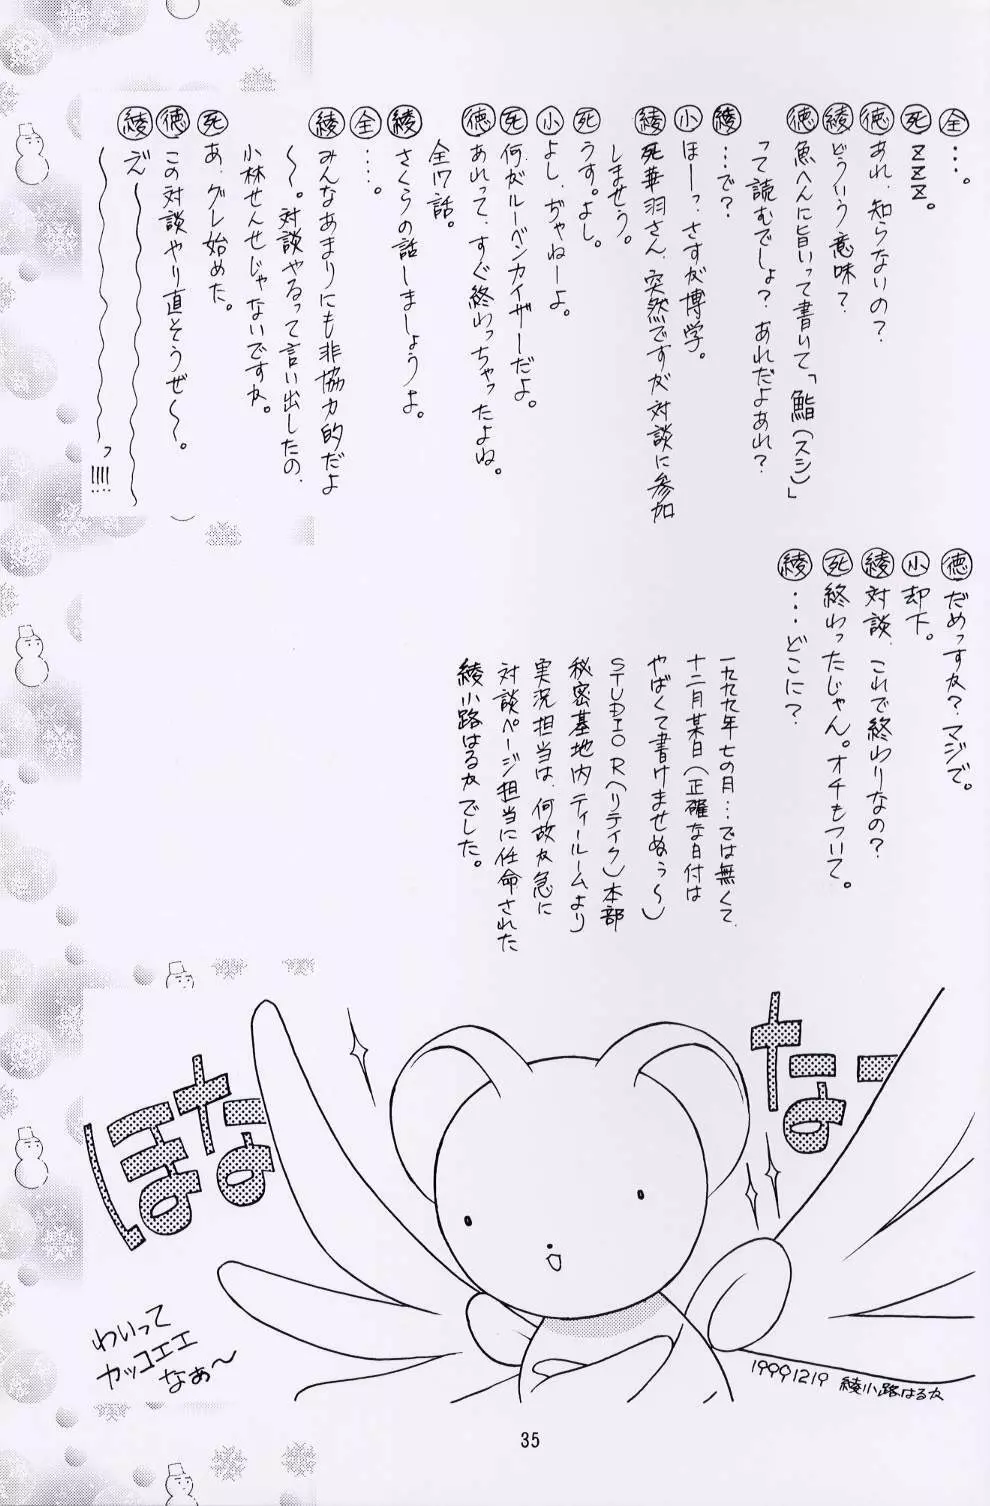 全…。
死ZZZ。
徳あれ、知らないの？
綾どういう意味？
徳魚へんに旨いって書いて「鮨(スシ)」
って読むでしょ？あれだよあれ？
綾…で？
小ほーっ、さすが博学。
綾死華羽さん、突然ですが対談に参加
しませう。
死うす。よし。
小よし、ぢゃねーよ。
死何がルーベンカイザーだよ。
徳あれって、すぐ終わっちゃったよね。
全17話。
綾さくらの話しましょうよ。
全…。
綾みんなあまりにも非協力的だよ
〜。対談やるって言い出したの、
小林せんせじゃないですか。
死あ、グレ始めた。
徳この対談やり直そうぜ〜。
綾だ〜
〜っ!!!!
徳だめっすか？マジで。
小却下。
綾対談、これで終わりなの？
死終わったじゃん。オチもついて。
綾…どこに？
一九九九年七の月…では無くて、
十二月某日(正確な日付は
やばくて書けませぬぅ〜)
STUDIO R(リテイク)本部
秘密基地内ティールームより
実況担当は、何故か急に
対談ページ担当に任命された
綾小路はるかでした。
ほなな
ー
わいって
カッコエエ
なぁ〜
19991219 綾小路はるか
35